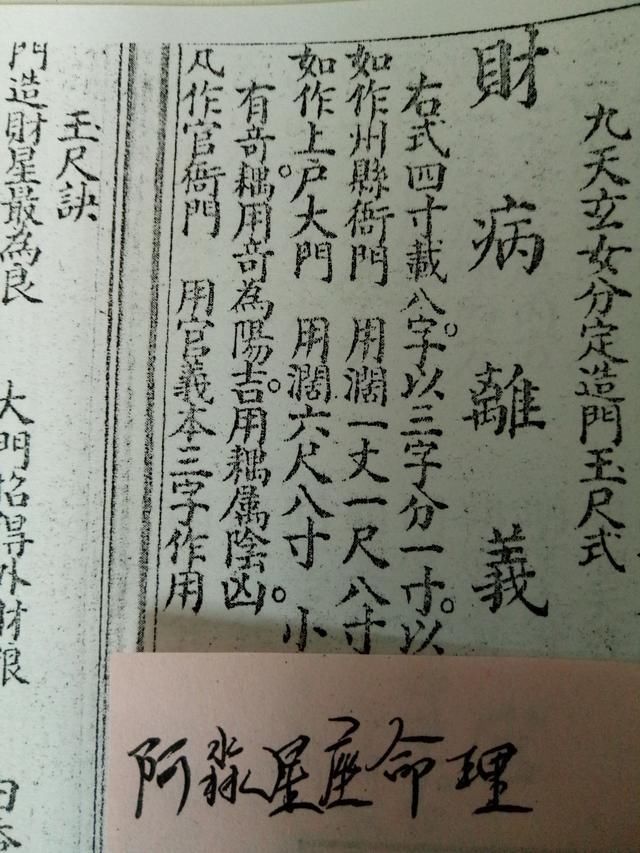 九天玄女分定造門玉尺式
財病離義
右式四寸載八字。以三字分一寸。以
如作州縣衙門　用濶一丈一尺八寸
如作上户大門　用濶六尺八寸　小
有竒耦用竒為陽吉。用耦属陰凶。
凡作官衙門　用官義本三字作用
玉尺訣
門造財星最為良　大門招得外財
阿淼星座命理